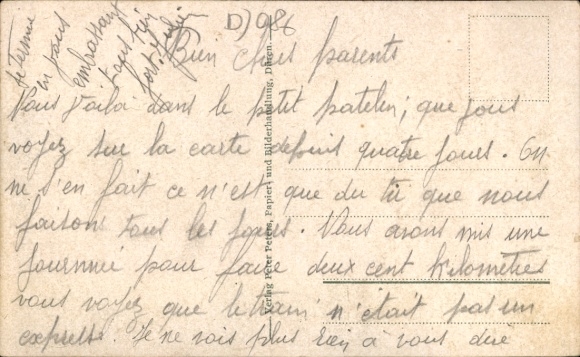 D) 086
Bien chers parents
Nous voila dans le petit patelin, que vous
voyez sur la carte depuis quatre jours. On
ne s'en fait ce n'est que du tir que nous
faisons tous les jours. Nous avons mis une
journnée pour faire deux cent kilomètres
vous voyez que le train n'était pas un
express. Je ne vois plus rien à vous dire
Je termine
en vous
embrassant
tous bien
fort. Julien
Verlag Peter Peters, Papier- und Bilderhandlung, Düren.